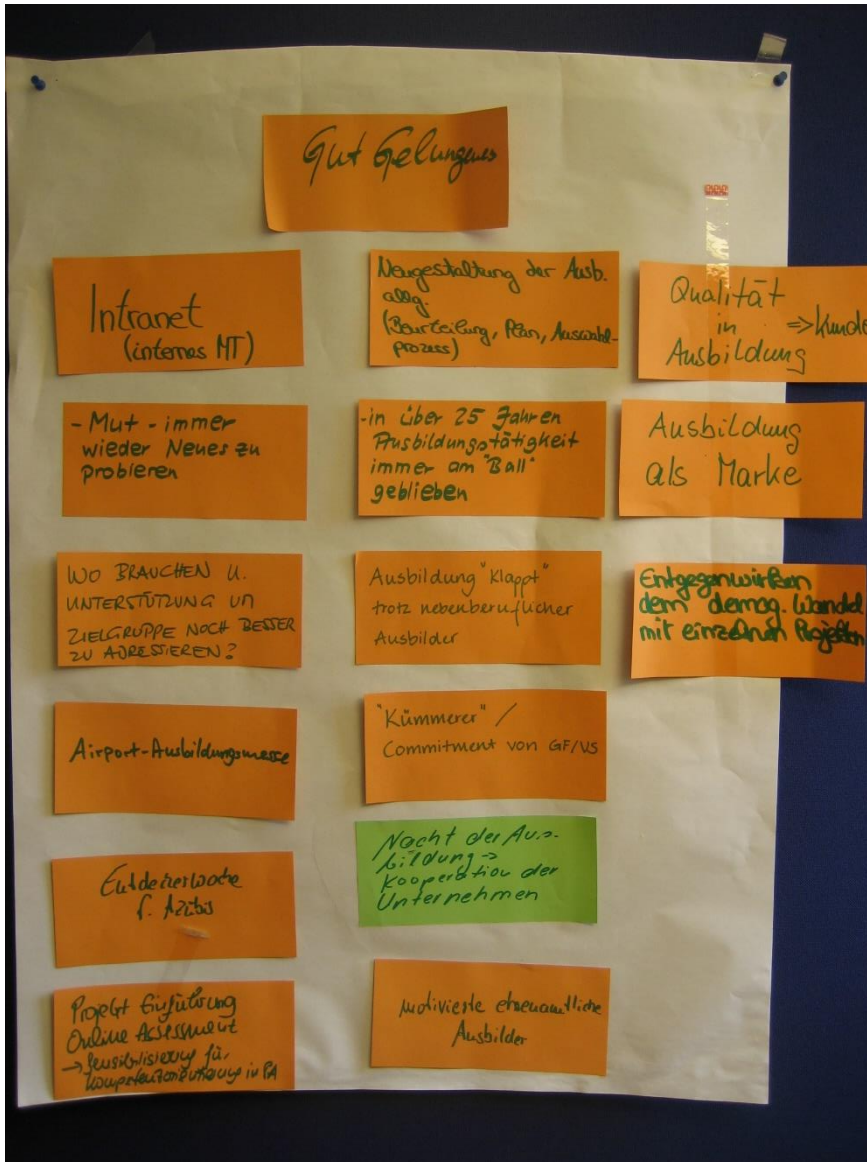 Gut Gelungenes
Intranet
(internes MT)
- Mut - immer
wieder Neues zu
probieren
WO BRAUCHEN U.
UNTERSTÜTZUNG UM
ZIELGRUPPE NOCH BESSER
ZU ADRESSIEREN?
Airport-Ausbildungsmesse
Entdeckerwoche
f. Azubis
Projekt Einführung
Online Assessment
→ Sensibilisierung für
Kompetenzorientierung in PA
Neugestaltung der Ausb.
allg.
(Beurteilung, Plan, Auswahl-
prozess)
-in über 25 Jahren
Ausbildungstätigkeit
immer am "Ball"
geblieben
Ausbildung "klappt"
trotz nebenberuflicher
Ausbilder
"Kümmerer" /
Commitment von GF/VS
Nacht der Aus-
bildung →
Kooperation der
Unternehmen
motivierte ehrenamtliche
Ausbilder
Qualität
in => Kunde
Ausbildung
Ausbildung
als Marke
Entgegenwirken
dem demog. Wandel
mit einzelnen Projekten